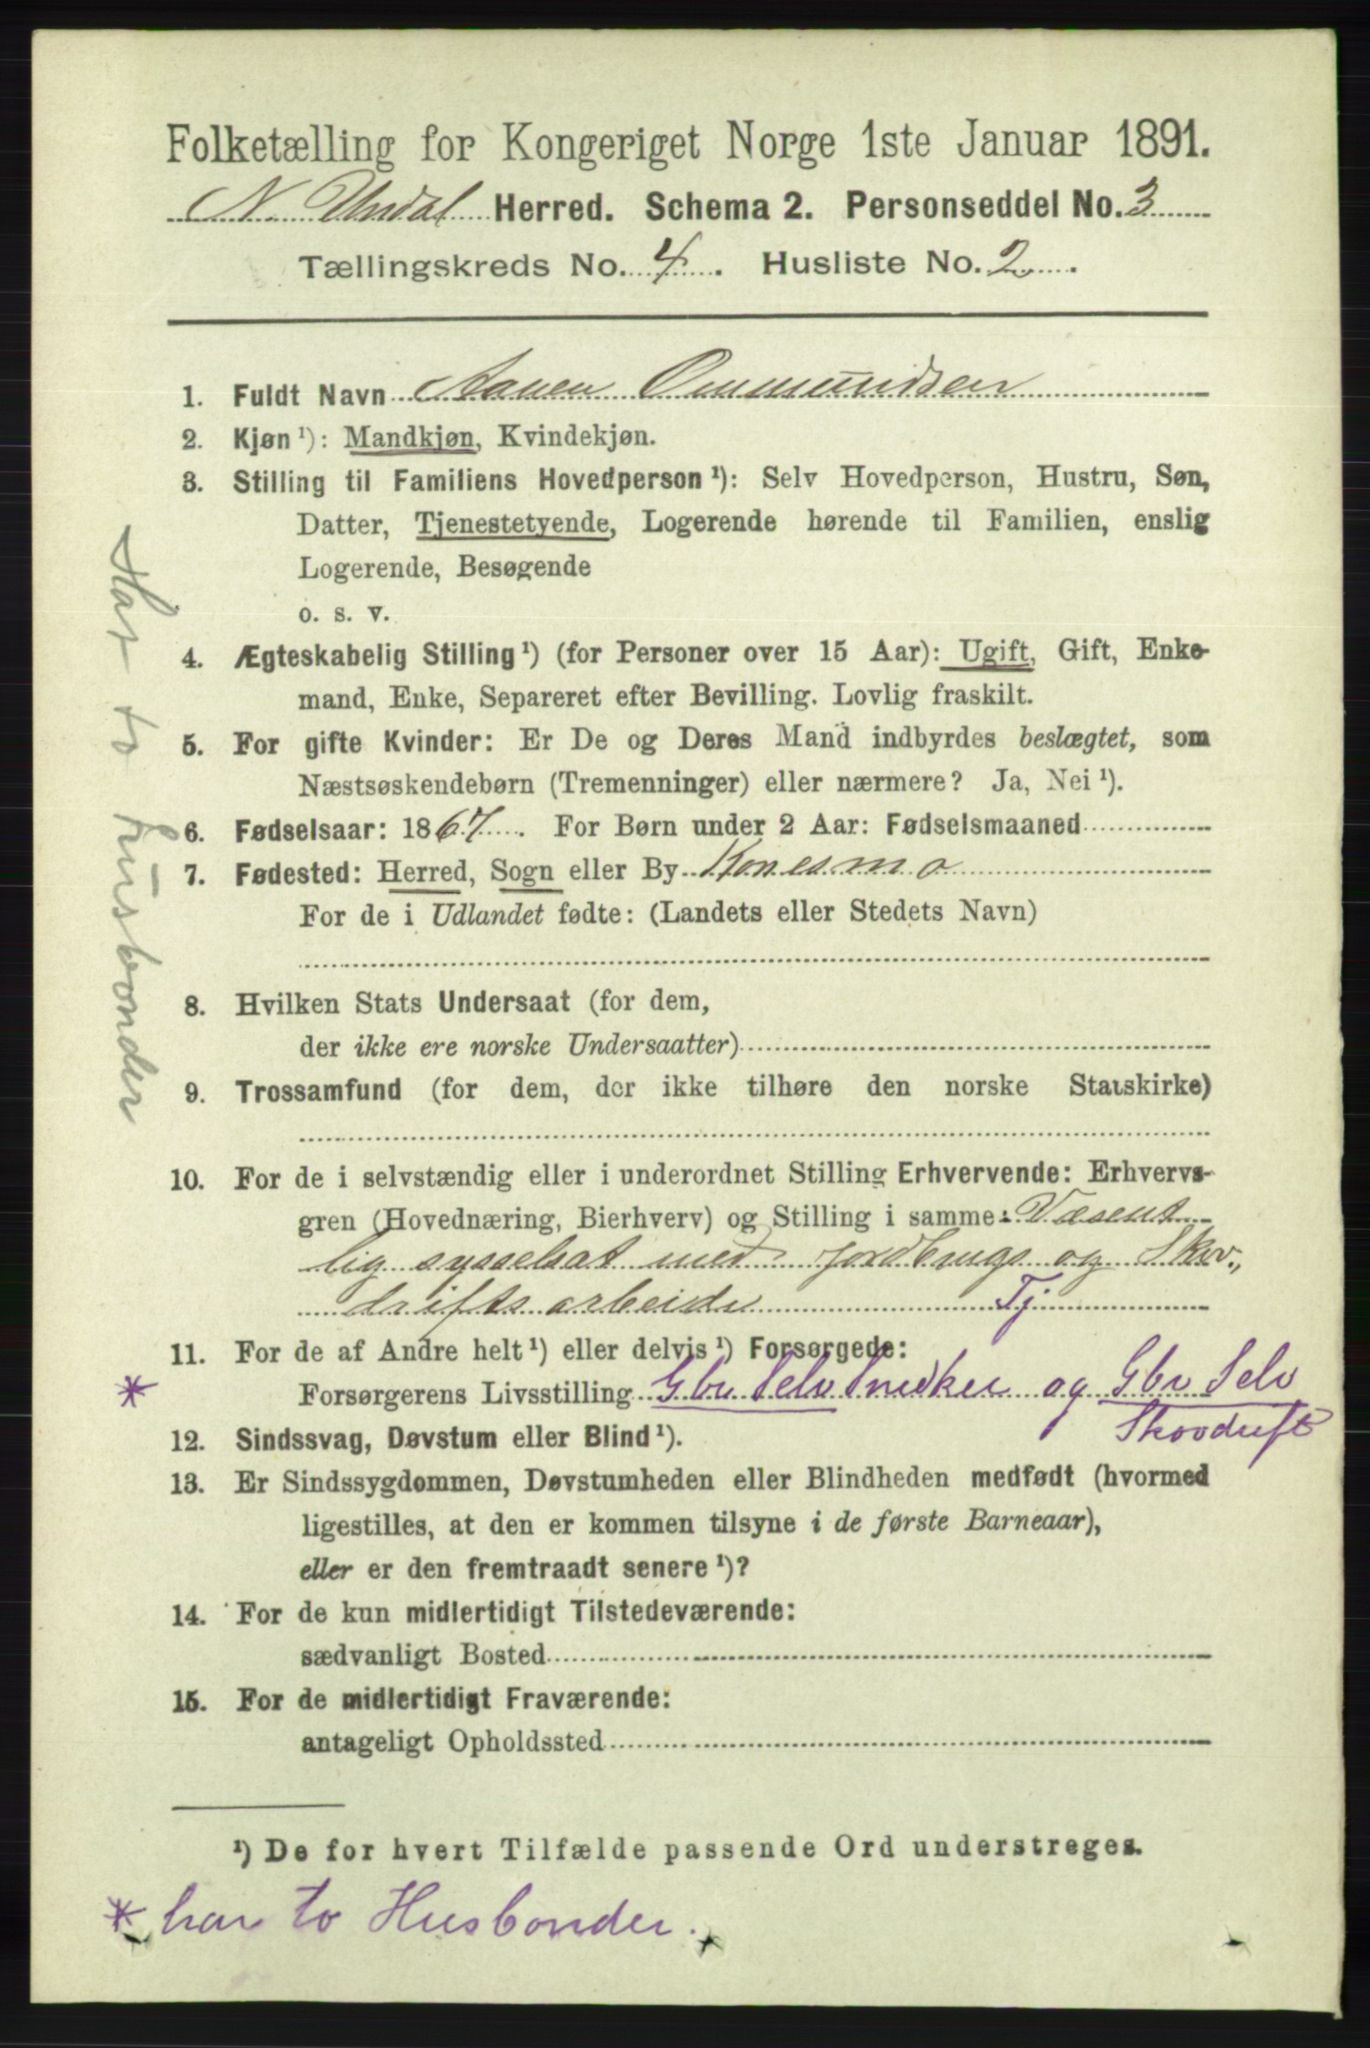 Folketælling for Kongeriget Norge 1ste Januar 1891.
N. Undal Herred. Schema 2. Personseddel No. 3
Tællingskreds No. 4. Husliste No. 2.
1. Fuldt Navn Aanen Ommundsen
2. Kjøn ¹): Mandkjøn, Kvindekjøn.
3. Stilling til Familiens Hovedperson ¹): Selv Hovedperson, Hustru, Søn,
Datter, Tjenestetyende, Logerende hørende til Familien, enslig
Logerende, Besøgende
o. s. v.
4. Ægteskabelig Stilling ¹) (for Personer over 15 Aar): Ugift, Gift, Enke-
mand, Enke, Separeret efter Bevilling. Lovlig fraskilt.
5. For gifte Kvinder: Er De og Deres Mand indbyrdes beslægtet, som
Næstsøskendebørn (Tremenninger) eller nærmere? Ja, Nei ¹).
6. Fødselsaar: 1867. For Børn under 2 Aar: Fødselsmaaned
7. Fødested: Herred, Sogn eller By Konesmo
For de i Udlandet fødte: (Landets eller Stedets Navn)
8. Hvilken Stats Undersaat (for dem,
der ikke ere norske Undersaatter)
9. Trossamfund (for dem, der ikke tilhøre den norske Statskirke)
10. For de i selvstændig eller i underordnet Stilling Erhvervende: Erhvervs-
gren (Hovednæring, Bierhverv) og Stilling i samme: Væsent
lig sysselsat med jordbrugs og Skov-
driftsarbeide Tj
11. For de af Andre helt ¹) eller delvis ¹) Forsørgede:
* Forsørgerens Livsstilling Gbr Selv Snedker og Gbr Selv
Skovdrift
12. Sindssvag, Døvstum eller Blind ¹).
13. Er Sindssygdommen, Døvstumheden eller Blindheden medfødt (hvormed
ligestilles, at den er kommen tilsyne i de første Barneaar),
eller er den fremtraadt senere ¹)?
14. For de kun midlertidigt Tilstedeværende:
sædvanligt Bosted
15. For de midlertidigt Fraværende:
antageligt Opholdssted
¹) De for hvert Tilfælde passende Ord understreges.
* har to Husbonder.
Har to husbonder